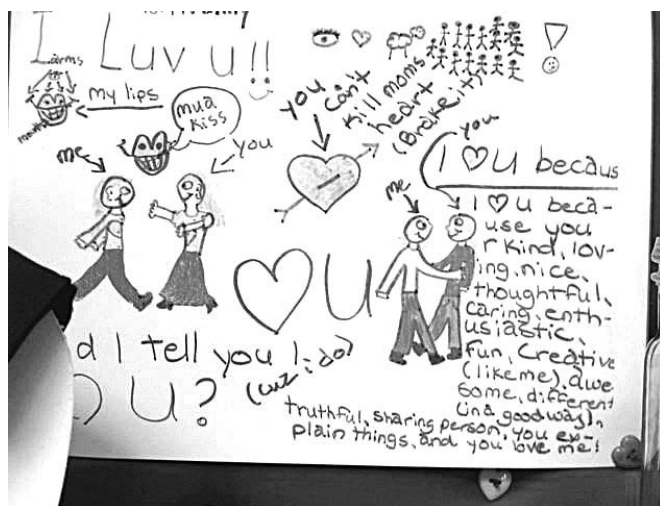 I Luv u!!
arms
my lips
mua
kiss
me
you
you
can't
kill moms
heart
(Brake it)
you
I ♡ U becaus
me
I ♡ U beca-
use you
r kind, lov-
ing, nice,
thoughtful,
caring, enth-
usiastic,
fun, creative
(like me), awe
some, different
(in a good way),
truthful, sharing person, you ex-
plain things, and you love me!
♡ U
d I tell you I
(cuz i do)
U?